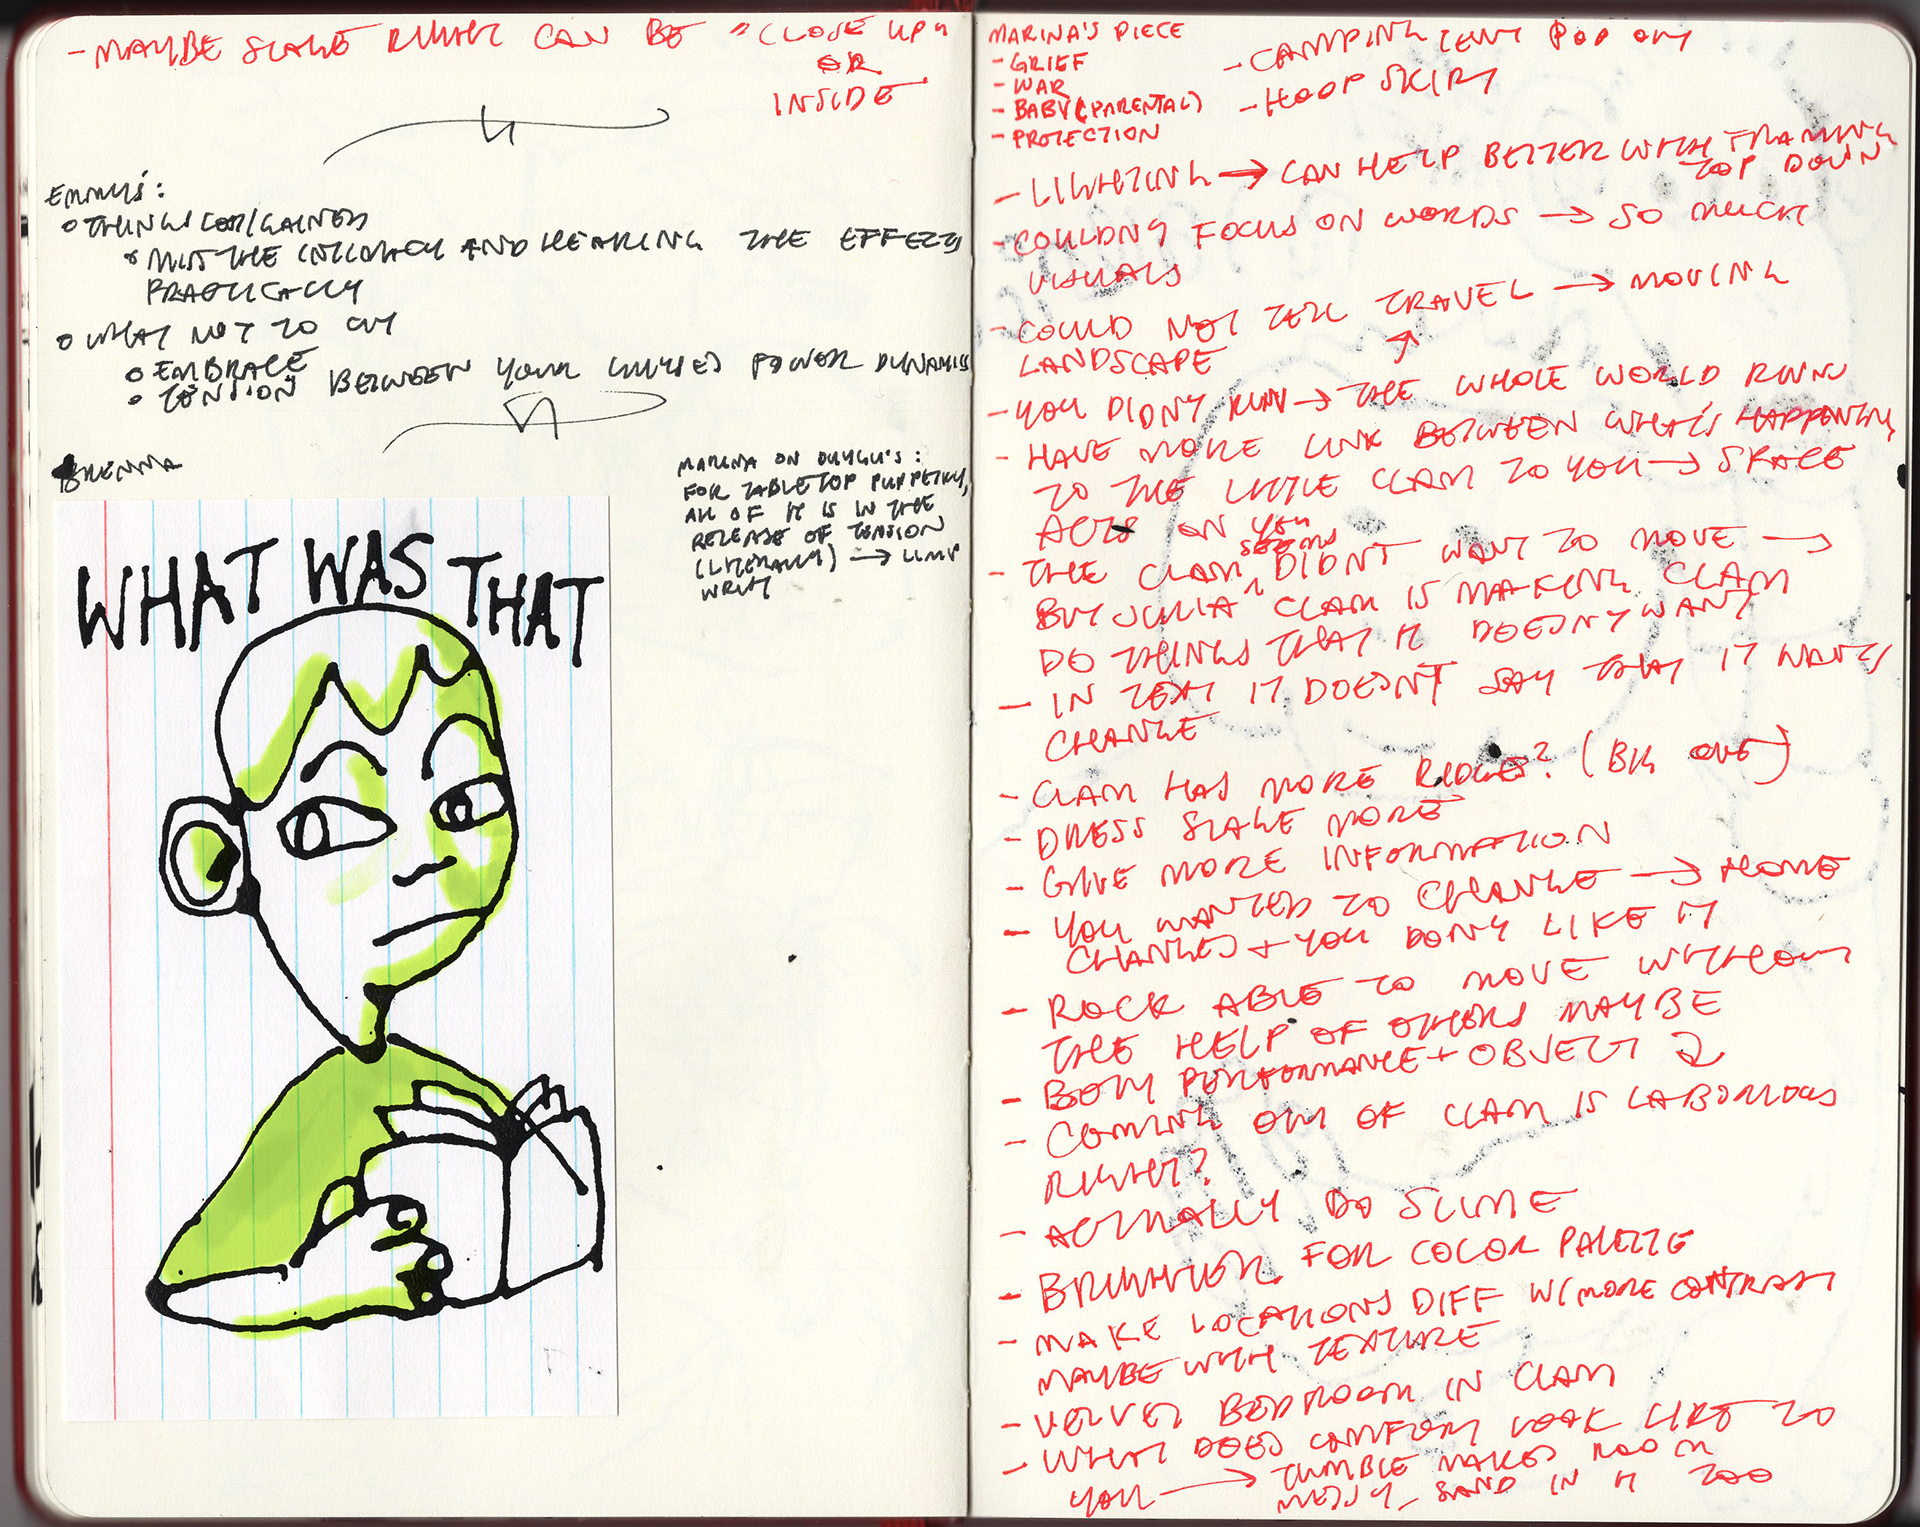 - MAYBE STAGE RIGHT CAN BE "CLOSE UP"
OR
INSIDE
EMMY'S:
THINGS LOST/GAINED
MISS THE INTIMACY AND HEARING THE EFFECTS
PRACTICALLY
WHAT NOT TO CUT
EMBRACE
TENSION BETWEEN YOUR POWER DYNAMICS
BRENNA
MARINA ON
FOR TABLETOP PUPPETRY,
ALL OF IT IS IN THE
RELEASE OF TENSION
(LITERALLY) → LIMP
WRIST
WHAT WAS THAT
MARINA'S PIECE
- GRIEF
- WAR
- BABY (PARENTAL)
- PROTECTION
- CAMPING TENT POP OUT
- HOOP SKIRT
- LIGHTING → CAN HELP BETTER WITH FRAMING
TOP DOWN
- COULDN'T FOCUS ON WORDS → SO MUCH
VISUALS
- COULD NOT TELL TRAVEL → MOVING
LANDSCAPE
- YOU DIDN'T RUN → THE WHOLE WORLD RUNS
- HAVE MORE LINK BETWEEN WHAT'S HAPPENING
TO THE LITTLE CLAM TO YOU → SPACE
ACTS ON YOU
- THE CLAM SEEMS DIDN'T WANT TO MOVE →
BUT JULIA CLAM IS MAKING CLAM
DO THINGS THAT IT DOESN'T WANT
- IN TEXT IT DOESN'T SAY THAT IT WANTS
CHANGE
- CLAM HAS MORE RIDGES? (BIG ONE)
- DRESS STAGE MORE
- GIVE MORE INFORMATION
- YOU WANTED TO CHANGE → HOME
CHANGES + YOU DON'T LIKE IT
- ROCK ABLE TO MOVE WITHOUT
THE HELP OF OTHERS MAYBE
- BOTH PERFORMANCE + OBJECT
- COMING OUT OF CLAM IS LABORIOUS
RIGHT?
- ACTUALLY DO SLIME
- BRIGHTER FOR COLOR PALETTE
- MAKE LOCATIONS DIFF W/ MORE CONTRAST
MAYBE WITH TEXTURE
- VELVET BEDROOM IN CLAM
- WHAT DOES COMFORT LOOK LIKE TO
YOU → TUMBLE MAKES ROOM
MESSY, SAND IN IT TOO